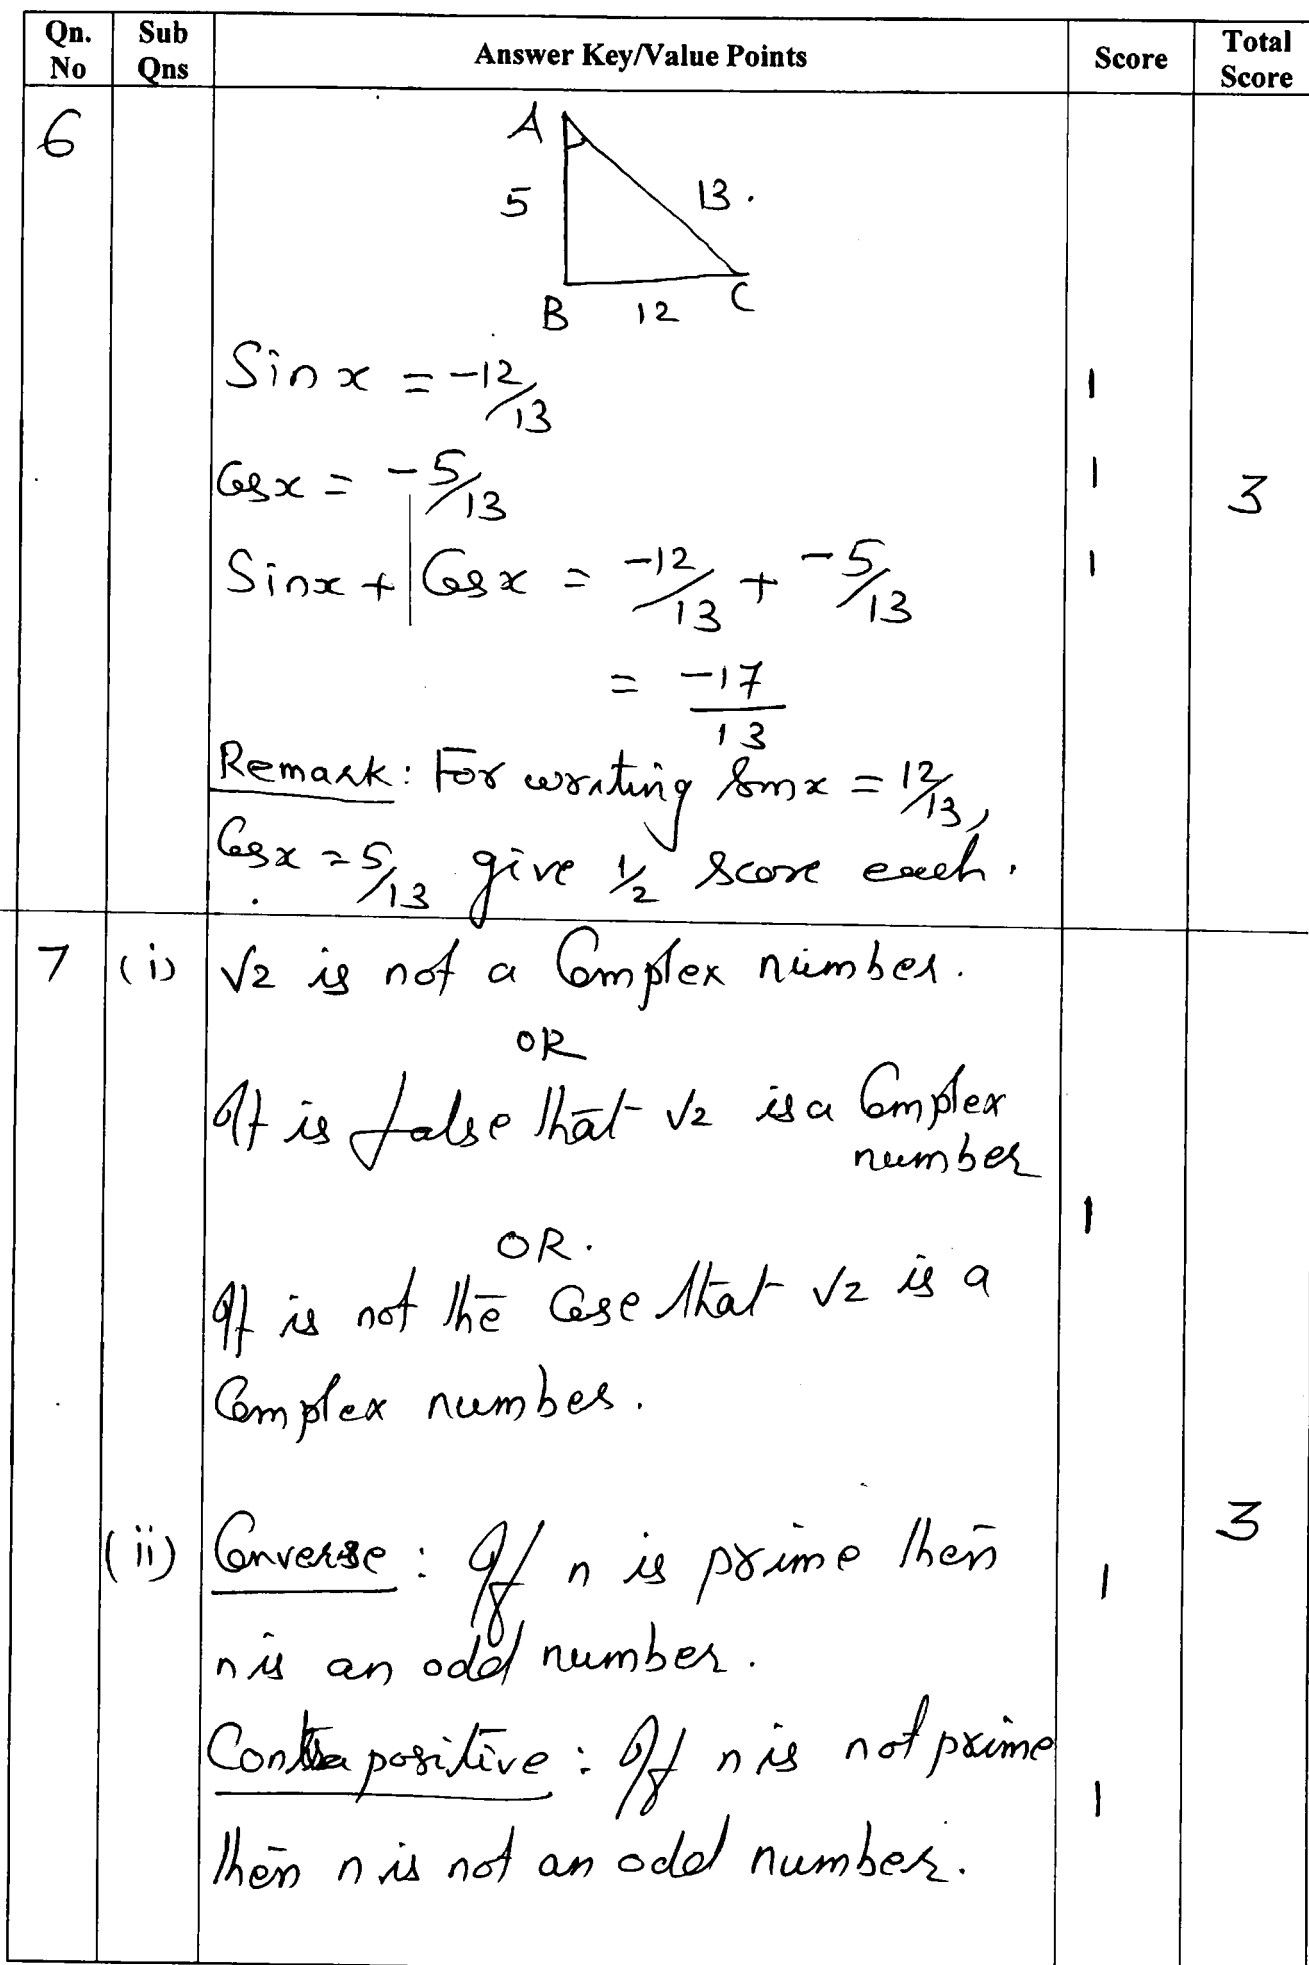 Qn. No Sub Qns Answer Key/Value Points Score Total Score
6
A
5 13.
B 12 C
Sin x = -12/13 1
Cos x = -5/13 1 3
Sin x + Cos x = -12/13 + -5/13 1
= -17/13
Remark: For writing Sin x = 12/13,
Cos x = 5/13 give 1/2 score each.
7 (i) √2 is not a Complex number.
OR
It is false that √2 is a Complex
number
1
OR.
It is not the Case that √2 is a
Complex number.
3
(ii) Converse: If n is prime then 1
n is an odd number.
Contrapositive: If n is not prime 1
then n is not an odd number.